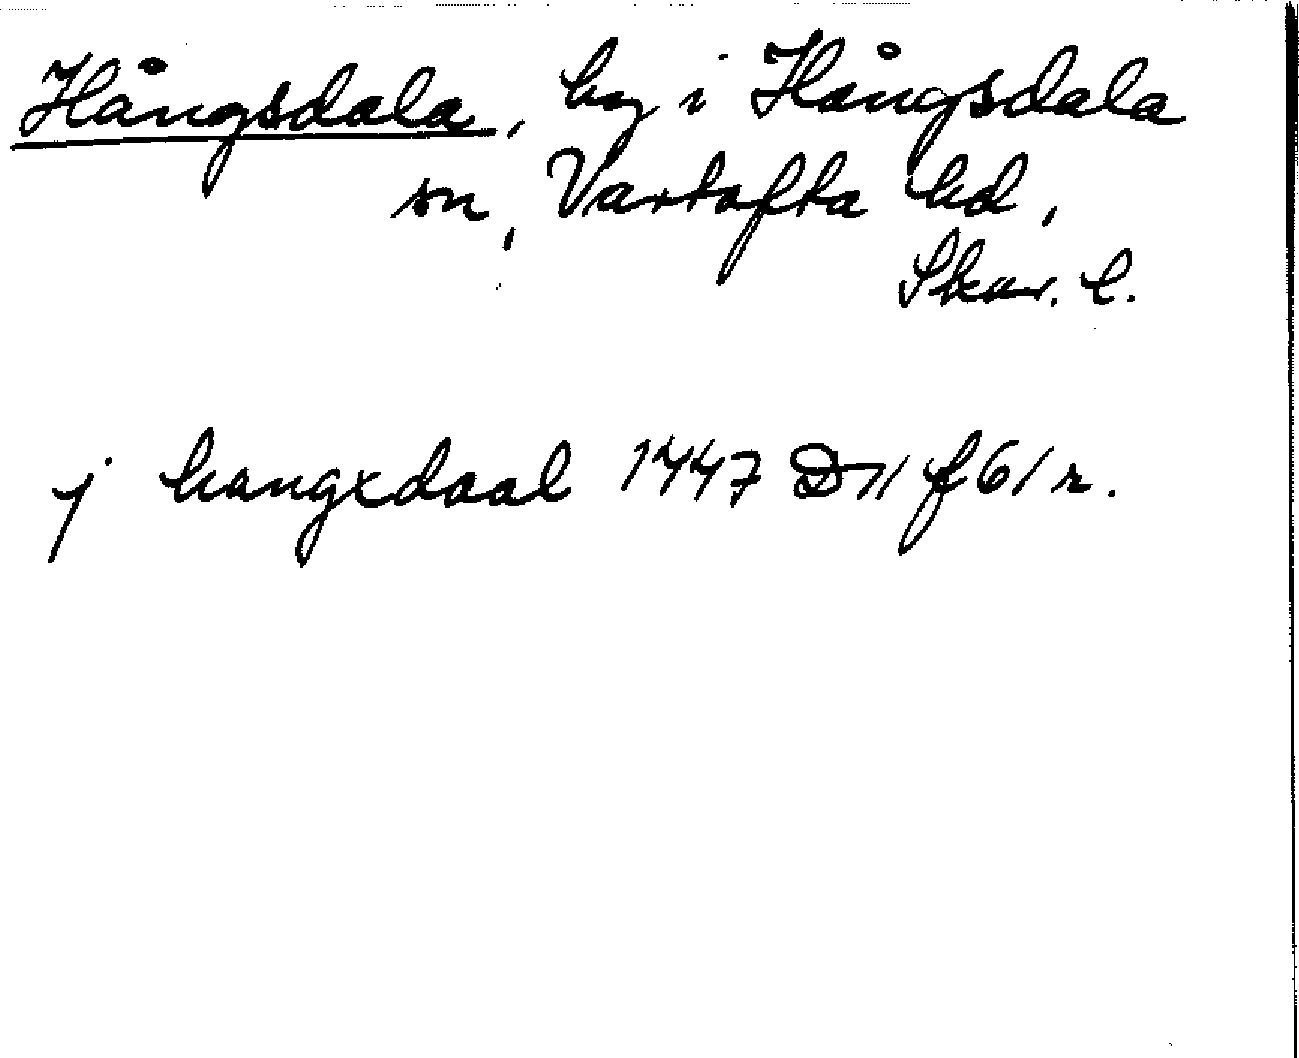 Hångsdala, by i Hångsdala
sn, Vartofta hd,
Skar. l.
j hangxdaal 1447 D 11 f 61 r.